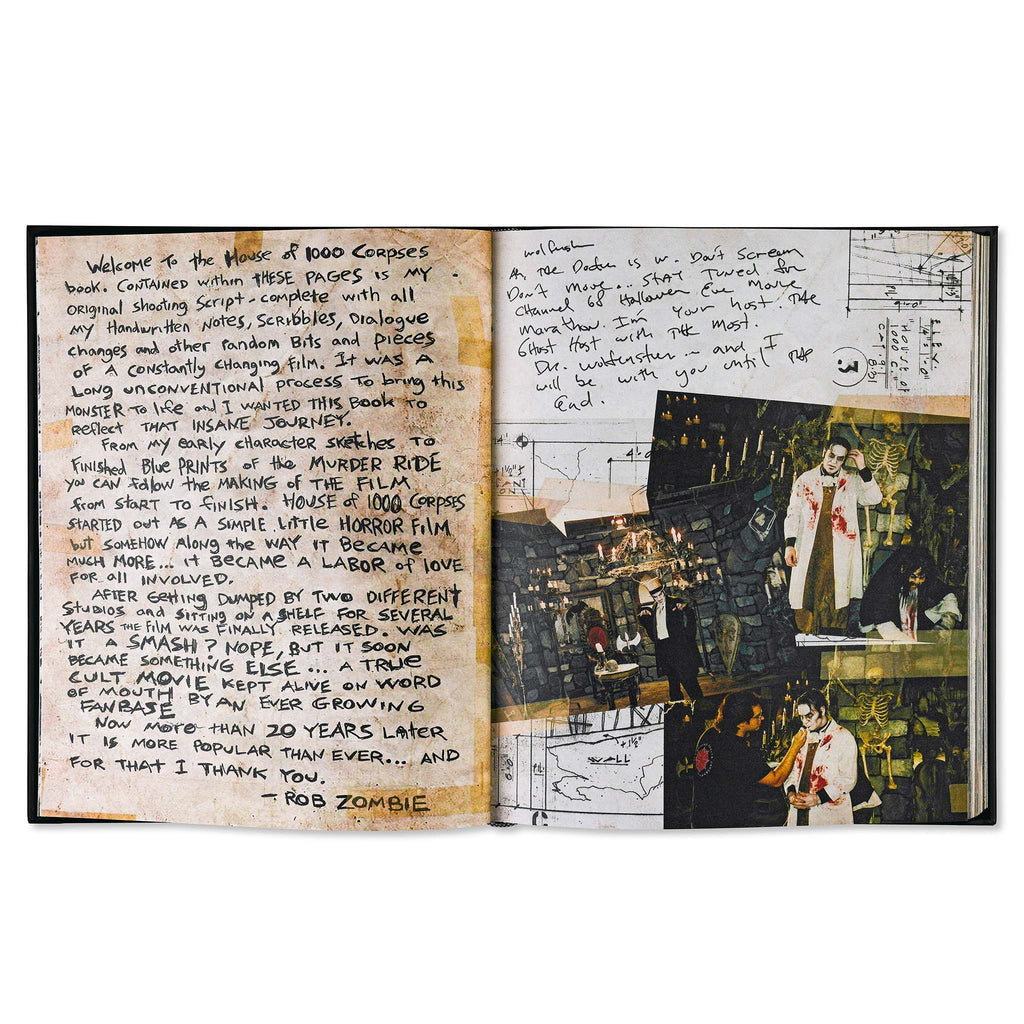 Welcome To the House of 1000 Corpses
book. CONTAINED within THESE PAGES is MY
original shooting Script - complete with all
my Handwritten Notes, Scribbles, Dialogue
changes and other random Bits and pieces
of A constantly changing film. It was A
Long unconventional process to bring this
MONSTER To life and I WANTED THIS BOOK TO
Reflect THAT INSANE JOURNEY.
From my early character sketches TO
Finished Blue PRINTS of the MURDER RIDE
you CAN follow the MAKING of THE FILM
from START TO FINISH. HOUSE of 1000 CORPSES
STARTED OUT AS A SIMPLE Little HORROR Film
but SOMEHOW Along the WAY IT BECAME
MUCH MORE... it BECAME A LABOR of LOVE
FOR all INVOLVED.
AFTER Getting DUMPED BY TWO DIFFERENT
Studios and sitting on A SHELF FOR SEVERAL
YEARS THE FILM WAS FINALLY RELEASED. WAS
IT A SMASH? NOPE, BUT IT SOON
BECAME SOMETHING ELSE... A TRUE
CULT MOVIE KEPT ALIVE ON WORD
OF MOUTH BY AN EVER GROWING
FANBASE
NOW MORE THAN 20 YEARS LATER
IT IS MORE POPULAR THAN EVER... AND
FOR THAT I THANK YOU.
- ROB ZOMBIE
Ah The Doctor is in. Don't Scream
Don't Move... STAY Tuned for
Channel 68 Halloween Eve Movie
Marathon. I'm Your host. THE
Ghost Host with THE Most.
Dr. Wolfenstein - and I
will be with you until THE
End.
9'-0"
1/4"=1'-0"
"HOUSE of
1000 C."
3
4'-0
+1 1/2"
+1/2"
WALL